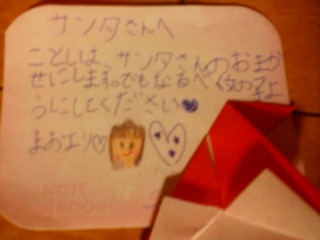 サンタさんへ
ことしは、サンタさんのおまか
せにします。でもなるべく女の子よ
うにしてください
まおより
NOTE
BOOK